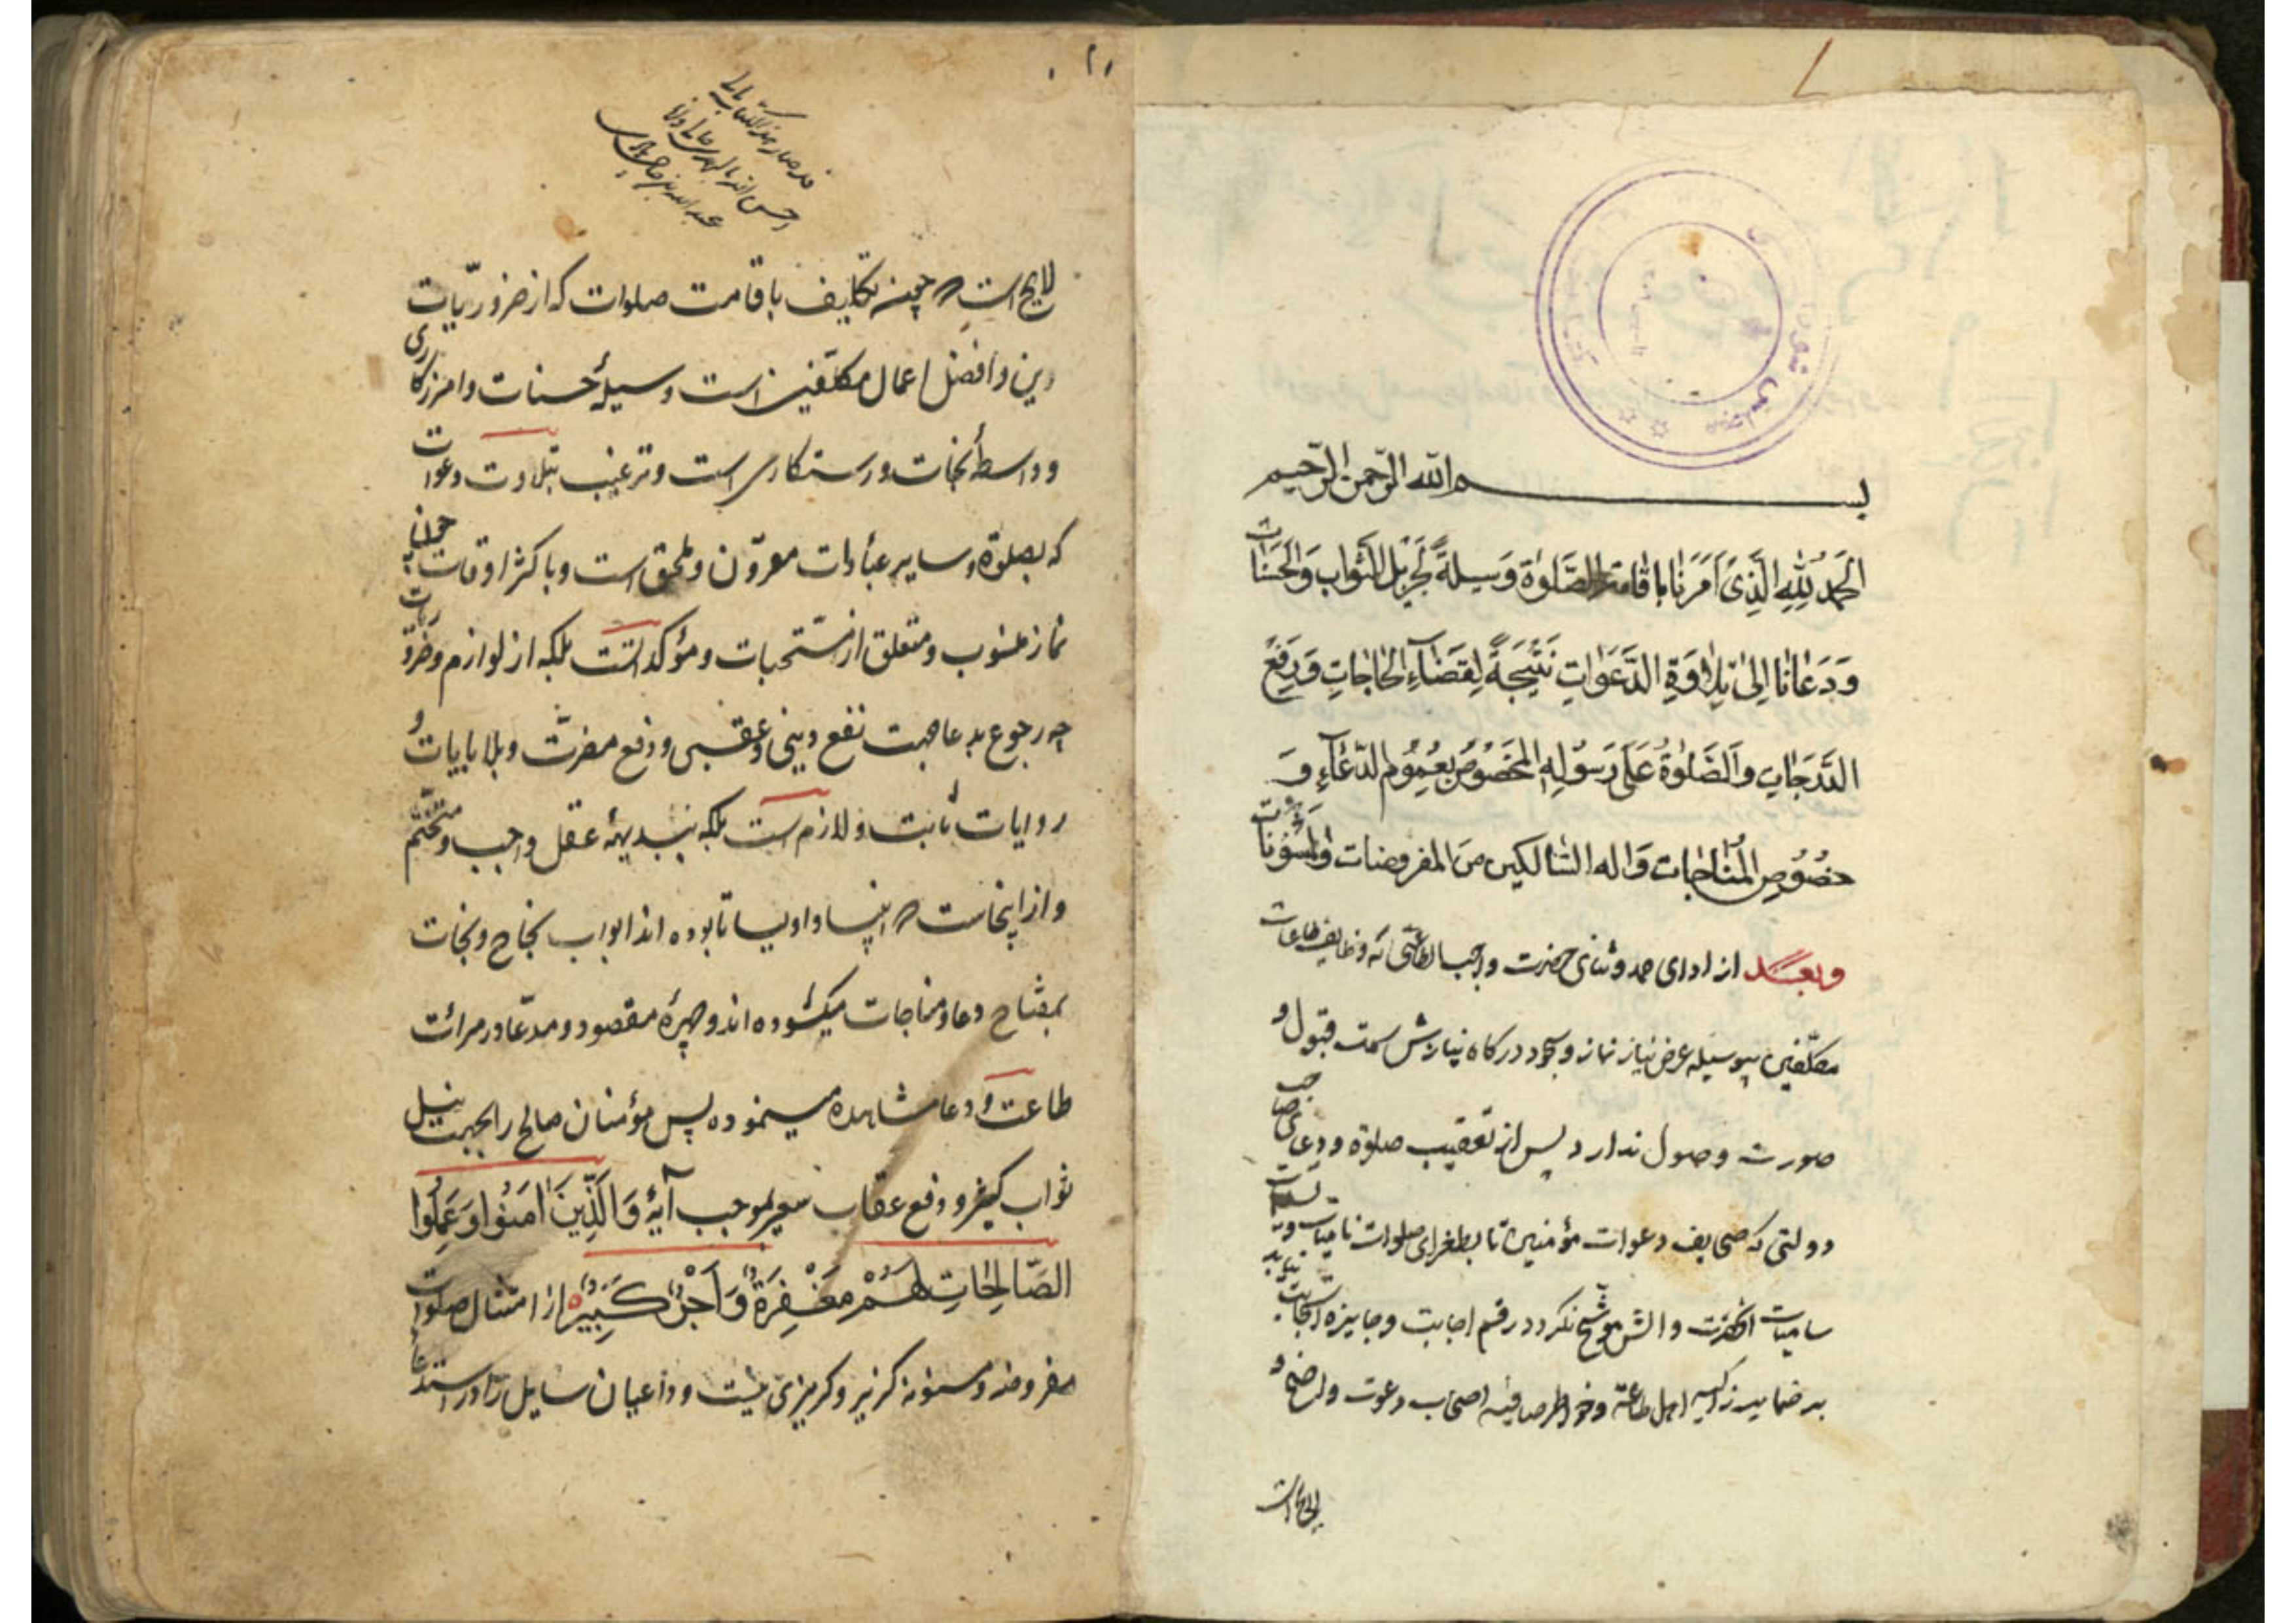 بسم الله الرّحمن الرّحیم
الحمد لله الّذی امرنا باقامة الصّلوة وسیلةً لجزیل الثواب والحسنات
ودعانا الی تلاوة الدّعوات نتیجةً لقضاء الحاجات ورفع
الدّرجات والصّلوة علی رسوله المخصوص بعموم الدّعاء و
خصوص المناجات واله السّالکین من المفروضات والمسنونات
وبعد از ادای حمد و ثنای حضرت واجب که وظایف طاعات
مکلّفین بی وسیله عرض نیاز نماز و سجود درکاه بی نیازش سمت قبول و
صورت وصول ندارد پس از تعقیب صلوة و دعای
دولتی که صحایف دعوات مؤمنین تا بطغرای صلوات نامیات و
سامیات آنحضرت و آلش موشّح نکردد رقم اجابت و جایزه
بر ضمایر زاکیه اهل طاعة و خواطر صافیه اصحاب دعوت ولضح و
لایح است
لایح است که همچنانکه تکلیف باقامت صلوات که از ضروریّات
دین و افضل اعمال مکلّفین است وسیلهٔ حسنات و امرزکاری
و واسطهٔ نجات و رستکاری است و ترغیب بتلاوت دعوات
که بصلوة و سایر عبادات مقرون و ملحق است و باکثر اوقات
نماز منسوب و متعلق از مستحبات و مؤکدات است بلکه از لوازم و ضروریات
چه رجوع بدعا جهت نفع دینی و عقبی و دفع مضرّت و بلا بایات و
روایات ثابت و لازم است بلکه ببدیههٔ عقل واجب و متحتّم
و از اینجاست که انبیا و اولیا تا بوده اند ابواب نجاح و نجات
بمفتاح دعا و مناجات میکشوده اند و چهرهٔ مقصود و مدّعا در مرآت
طاعت و دعا مشاهده مینموده پس مؤمنان صالح را بجهت نیل
ثواب کبیر و دفع عقاب سعیر بموجب آیهٔ وَالَّذِینَ اٰمَنُوا وَعَمِلُوا
الصّالِحاتِ لَهُمْ مَغْفِرَةٌ وَاَجْرٌ کَبِیرٌ از امتثال صلوات
مفروضه و مسنونه کزیر و کریزی نیست و داعیان سایل را در استدعا